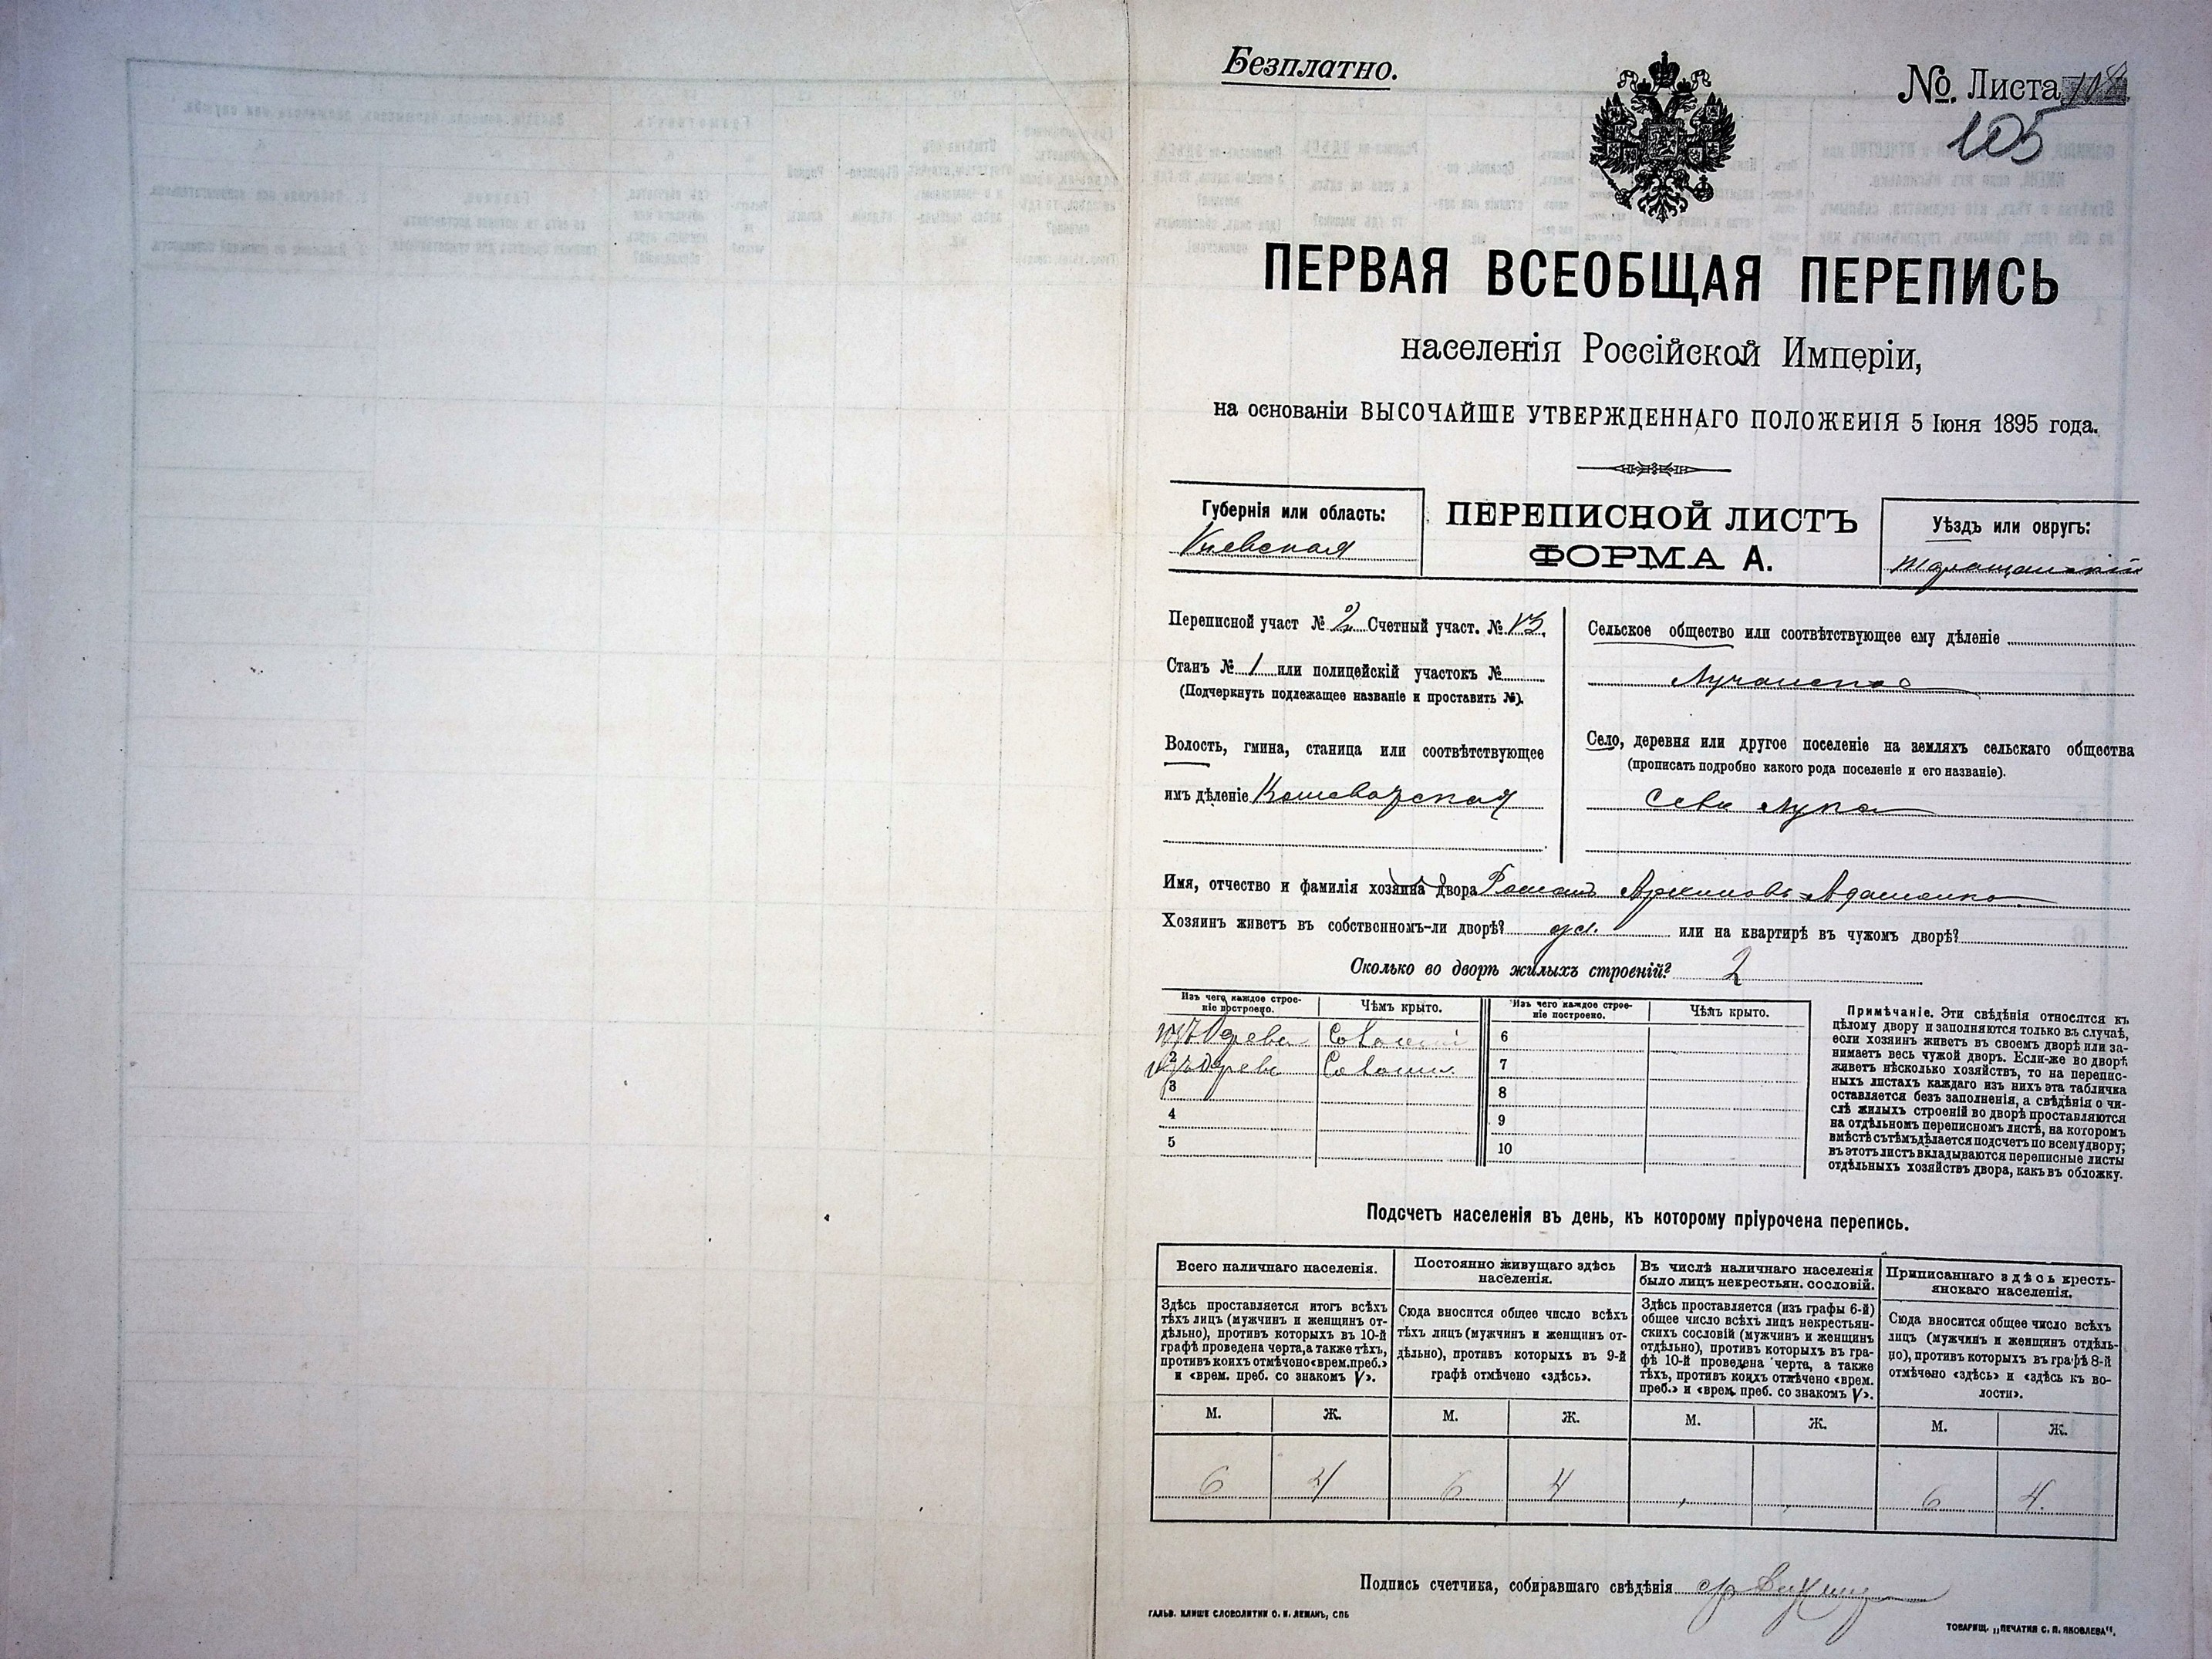 Безплатно.
№ Листа 108
105
ПЕРВАЯ ВСЕОБЩАЯ ПЕРЕПИСЬ
населенія Россійской Имперіи,
на основаніи ВЫСОЧАЙШЕ УТВЕРЖДЕННАГО ПОЛОЖЕНІЯ 5 Іюня 1895 года.
Губернія или область:
Киевская
ПЕРЕПИСНОЙ ЛИСТЪ
ФОРМА А.
Уѣздъ или округъ:
Таращанскій
Переписной участ № 2 Счетный участ. № 13.
Станъ № 1 или полицейскій участокъ №
(Подчеркнуть подлежащее названіе и проставить №).
Волость, гмина, станица или соотвѣтствующее
имъ дѣленіе Кошеватская
Сельское общество или соотвѣтствующее ему дѣленіе
Лучанское
Село, деревня или другое поселеніе на земляхъ сельскаго общества
(прописать подробно какого рода поселеніе и его названіе).
Село Лука
Имя, отчество и фамилія хозяина двора Романъ Архиповъ Адаменко
Хозяинъ живетъ въ собственномъ-ли дворѣ? да. или на квартирѣ въ чужомъ дворѣ?
Сколько во дворѣ жилыхъ строеній? 2
Изъ чего каждое строе-
ніе построено.
Чѣмъ крыто.
Изъ чего каждое строе-
ніе построено.
Чѣмъ крыто.
изъ дерева Соломой 6
2 изъ дерева Соломой 7
3 8
4 9
5 10
Примѣчаніе. Эти свѣдѣнія относятся къ
цѣлому двору и заполняются только въ случаѣ,
если хозяинъ живетъ въ своемъ дворѣ или за-
нимаетъ весь чужой дворъ. Если-же во дворѣ
живетъ нѣсколько хозяйствъ, то на переписс-
ныхъ листахъ каждаго изъ нихъ эта табличка
оставляется безъ заполненія, а свѣдѣнія о чи-
слѣ жилыхъ строеній во дворѣ проставляются
на отдѣльномъ переписномъ листѣ, на которомъ
вмѣстѣ съ тѣмъ дѣлается подсчетъ по всему двору;
въ этотъ листъ вкладываются переписные листы
отдѣльныхъ хозяйствъ двора, какъ въ обложку.
Подсчетъ населенія въ день, къ которому пріурочена перепись.
Всего наличнаго населенія.
Здѣсь проставляется итогъ всѣхъ
тѣхъ лицъ (мужчинъ и женщинъ от-
дѣльно), противъ которыхъ въ 10-й
графѣ проведена черта, а также тѣхъ,
противъ коихъ отмѣчено «врем. преб.»
и «врем. преб. со знакомъ V».
Постоянно живущаго здѣсь
населенія.
Сюда вносится общее число всѣхъ
тѣхъ лицъ (мужчинъ и женщинъ от-
дѣльно), противъ которыхъ въ 9-й
графѣ отмѣчено «здѣсь».
Въ числѣ наличнаго населенія
было лицъ некрестьян. сословій.
Здѣсь проставляется (изъ графы 6-й)
общее число всѣхъ лицъ некрестьян-
скихъ сословій (мужчинъ и женщинъ
отдѣльно), противъ которыхъ въ гра-
фѣ 10-й проведена черта, а также
тѣхъ, противъ коихъ отмѣчено «врем.
преб.» и «врем. преб. со знакомъ V».
Приписаннаго здѣсь кресть-
янскаго населенія.
Сюда вносится общее число всѣхъ
лицъ (мужчинъ и женщинъ отдѣль-
но), противъ которыхъ въ графѣ 8-й
отмѣчено «здѣсь» и «здѣсь къ во-
лости».
М. Ж. М. Ж. М. Ж. М. Ж.
6 4 6 4 6 4.
Подпись счетчика, собиравшаго свѣдѣнія
ГАЛЬВ. КЛИШЕ СЛОВОЛИТНИ О. И. ЛЕМАНЪ, СПБ
ТОВАРИЩ. „ПЕЧАТНЯ С. П. ЯКОВЛЕВА“.